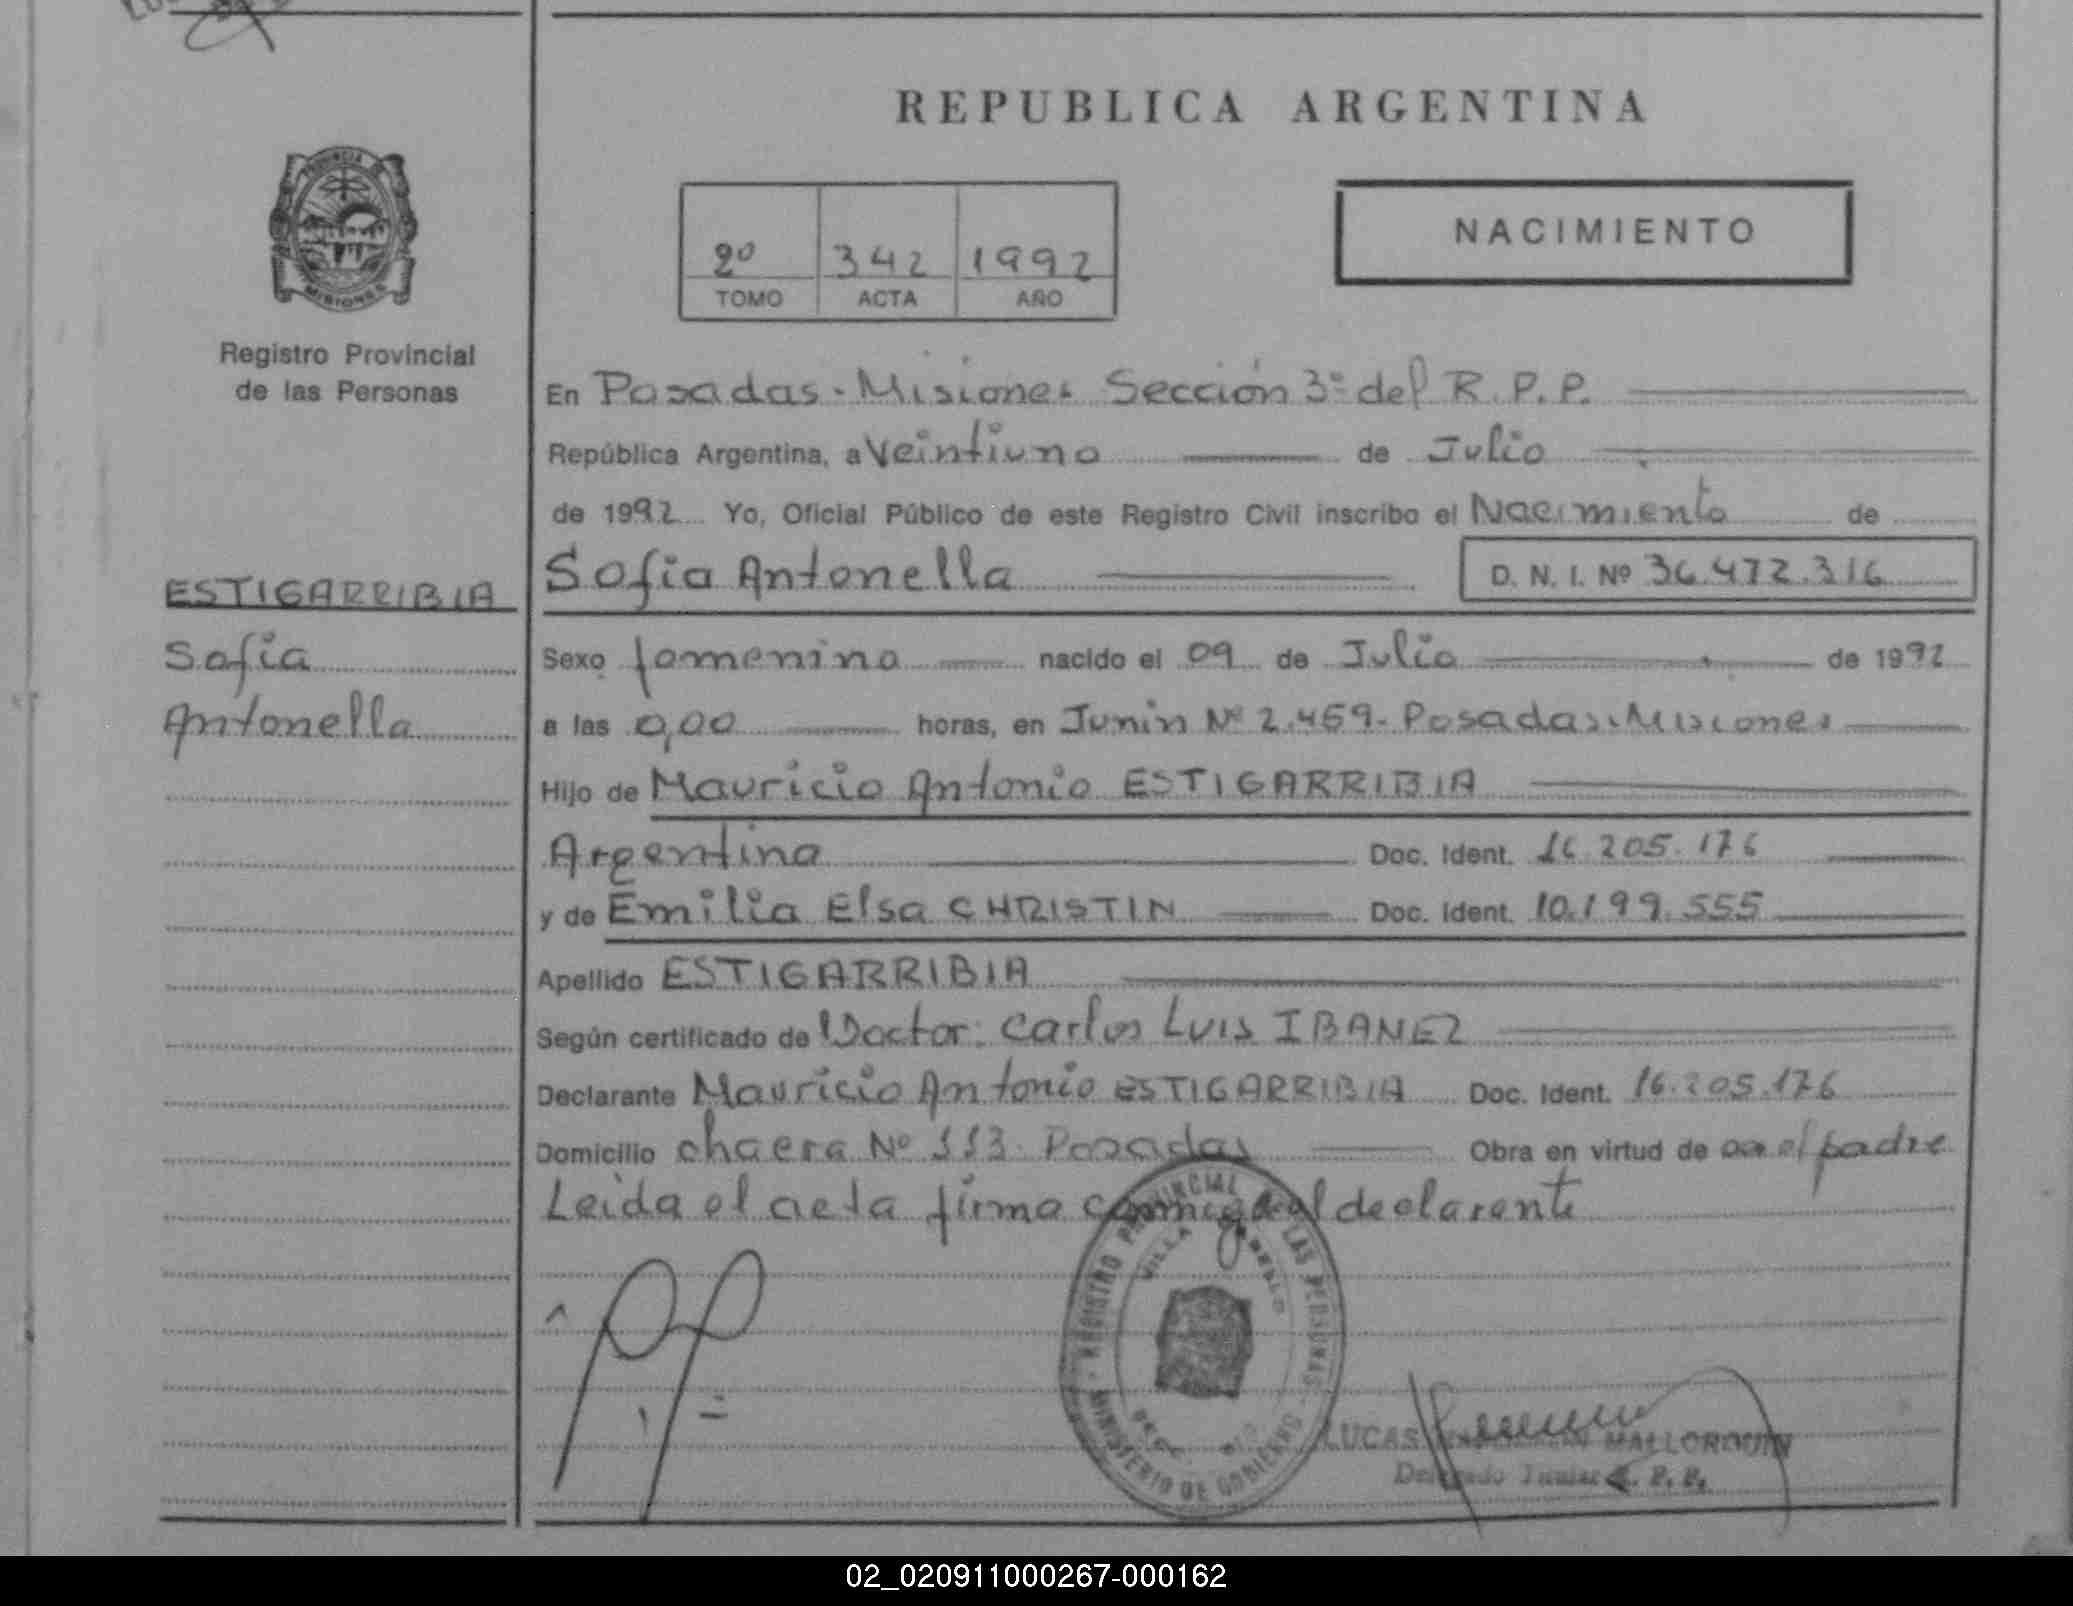 REPUBLICA ARGENTINA
PROVINCIA DE
MISIONES
Registro Provincial
de las Personas
2º 342 1992
TOMO ACTA AÑO
NACIMIENTO
En Posadas - Misiones Sección 3º del R. P. P.
República Argentina, a Veintiuno de Julio
de 1992 Yo, Oficial Público de este Registro Civil inscribo el Nacimiento de
Sofia Antonella D. N. I. Nº 36.472.316
ESTIGARRIBIA
Sofia
Antonella
Sexo femenino nacido el 09 de Julio de 1992
a las 0,00 horas, en Junin Nº 2.459- Posadas-Misiones
Hijo de Mauricio Antonio ESTIGARRIBIA
Argentina Doc. Ident. 16.205.176
y de Emilia Elsa CHRISTIN Doc. Ident. 10.199.555
Apellido ESTIGARRIBIA
Según certificado de Doctor: Carlos Luis IBANEZ
Declarante Mauricio Antonio ESTIGARRIBIA Doc. Ident. 16.205.176
Domicilio chacra Nº 113- Posadas Obra en virtud de el padre
Leida el acta firma conmigo el declarante
REGISTRO PROVINCIAL DE LAS PERSONAS
VILLA
MINISTERIO DE GOBIERNO
LUCAS MALLORQUIN
Delegado Titular R. P. P.
02_020911000267-000162